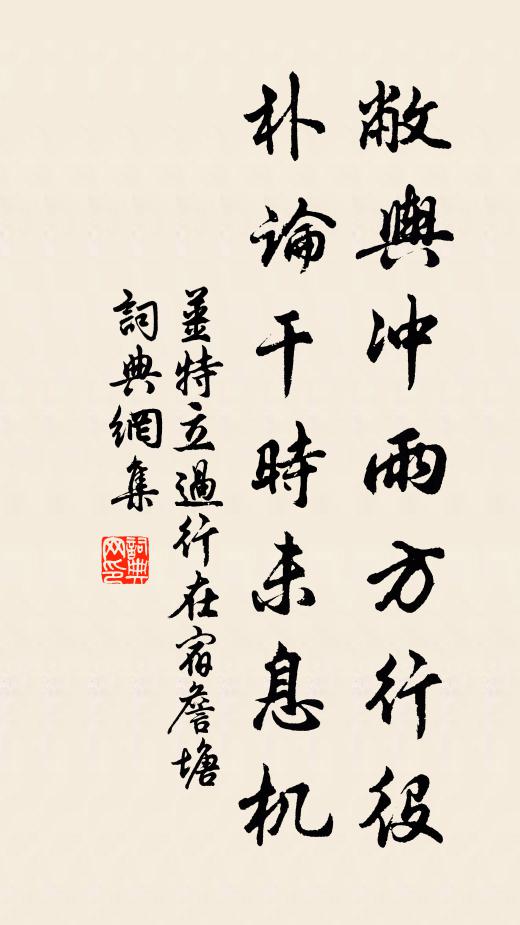 敝輿冲雨方行役
朴論干時未息机
薑特立過行在宿詹塘
詞典網集
詞典网印